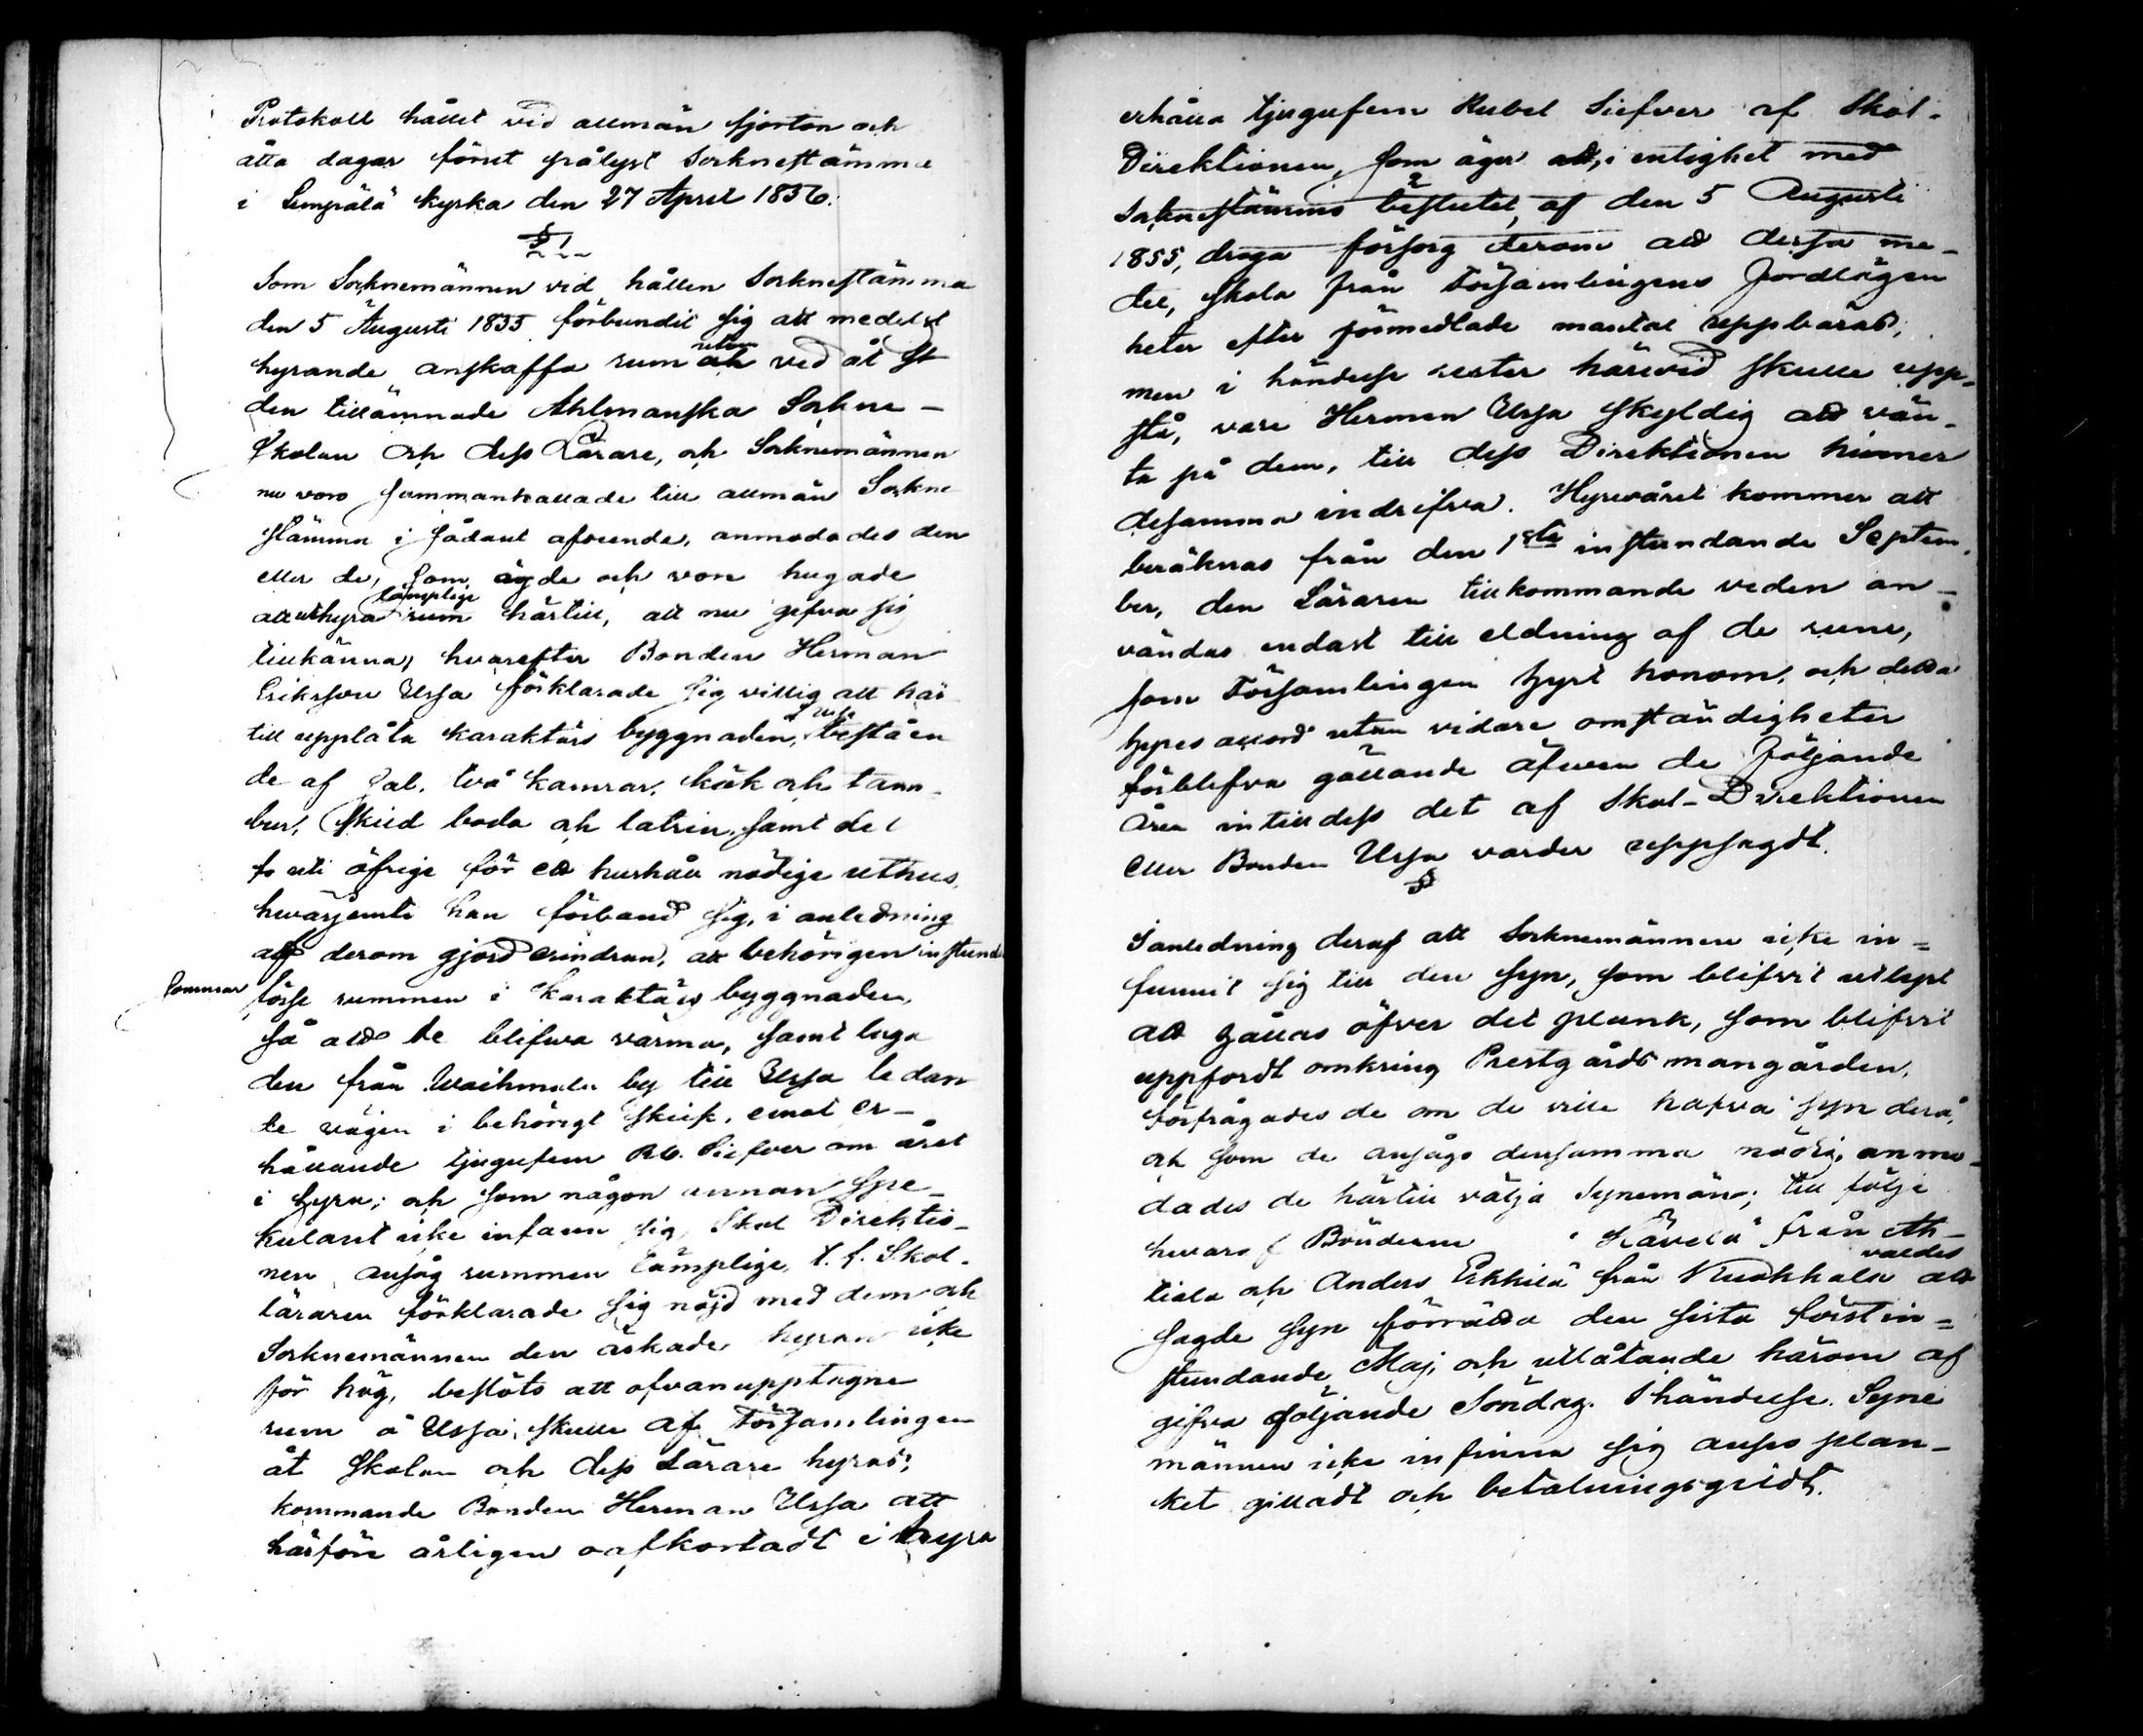 Protokoll hållet vid allmän fjorton och
åtta dagar förut pålyst Sockneståmma
i Lempälä kyrka den 27 April 1856.
§ 1.
Som Socknemännen vid hållen Sockneståmma
den 5 Augusti 1855 förbundit sig att medelst
hyrande anskaffa rum utom ved åt
den tillämnade Ahlmanska Sockne-
Skolan och dess Lärare, och Socknemännen
nu voro sammankallade till allmän Sockne
stämma i sådant afseende, anmodades den
eller de, som ägde och voro hugade
att uthyra lämplige rum härtill, att nu gifva sig
tillkänna, hvarefter Bonden Herman
Eriksson Ussa förklarade sig villig att här
till upplåta karaktärs byggnaden, beståen
de af Sal, två kamrar, kök och tam-
bur, Skild boda och latrin, samt det
to uti öfrige för ett hushåll nödige uthus,
hvarjemte han förband sig, i anledning
af derom gjord erindran, att behörigen instund.
Sommar förse rummen i karaktärs byggnaden,
så att de blifva varma, samt laga
den från Waihmala by till Ussa ledan
de vägen i behörigt skick, emot er-
hållande tjugufem Rub. Silfver om året
i hyra; och som någon annan spe-
kulant icke infann sig, Skol Direktio-
nen ansåg rummen lämplige, t. f. Skol-
läraren förklarade sig nöjd med dem och
Socknemännen den äskade hyran icke
för hög, beslöts att ofvanupptagne
rum å Ussa, skulle af Församlingen
åt Skolan och dess Lärare hyras,
kommande Bonden Herman Ussa att
härför årligen oafkortadt i hyra
erhålla tjugufem Rubel Silfver af Skol-
Direktionen, som äger att, i enlighet med
Sockneståmmo beslutet, af den 5 Augusti
1855, draga försorg derom att dessa me-
del, skola från Församlingens Jordlägen
heter efter förmedlade mantal uppbäras;
men i händelse rester härvid skulle upp-
stå, vare Herman Ussa skyldig att vän-
ta på dem, till dess Direktionen hinner
desamma indrifva. Hyresåret kommer att
beräknas från den 1sta instundande Septem-
ber, den Läraren tillkommande veden an-
vändas endast till eldning af de rum,
som Församlingen hyrt honom, och detta
hyres accord utan vidare omständigheter
förblifva gällande äfven de följande
åren intilldess det af Skol-Direktionen
eller Bonden Ussa varder uppsagdt.
§
I anledning deraf att Socknemännen icke in=
funnit sig till den syn, som blifvit utlyst
att hållas öfver det plank, som blifvit
uppfördt omkring Prestgårds mangården,
förfrågades de om de ville hafva syn derå,
och som de ansågo densamma nödig, anmo-
dades de härtill välja Synemän; till följe
hvaraf Bönderne från
och Anders Erkkilä från Kuokkala valdes att
sagde syn förrätta den sista först in=
stundande Maj, och utlåtande härom af
gifva följande Söndag. I händelse Syne
männen icke infinna sig anses plan-
ket gilladt och betalningsgildt.